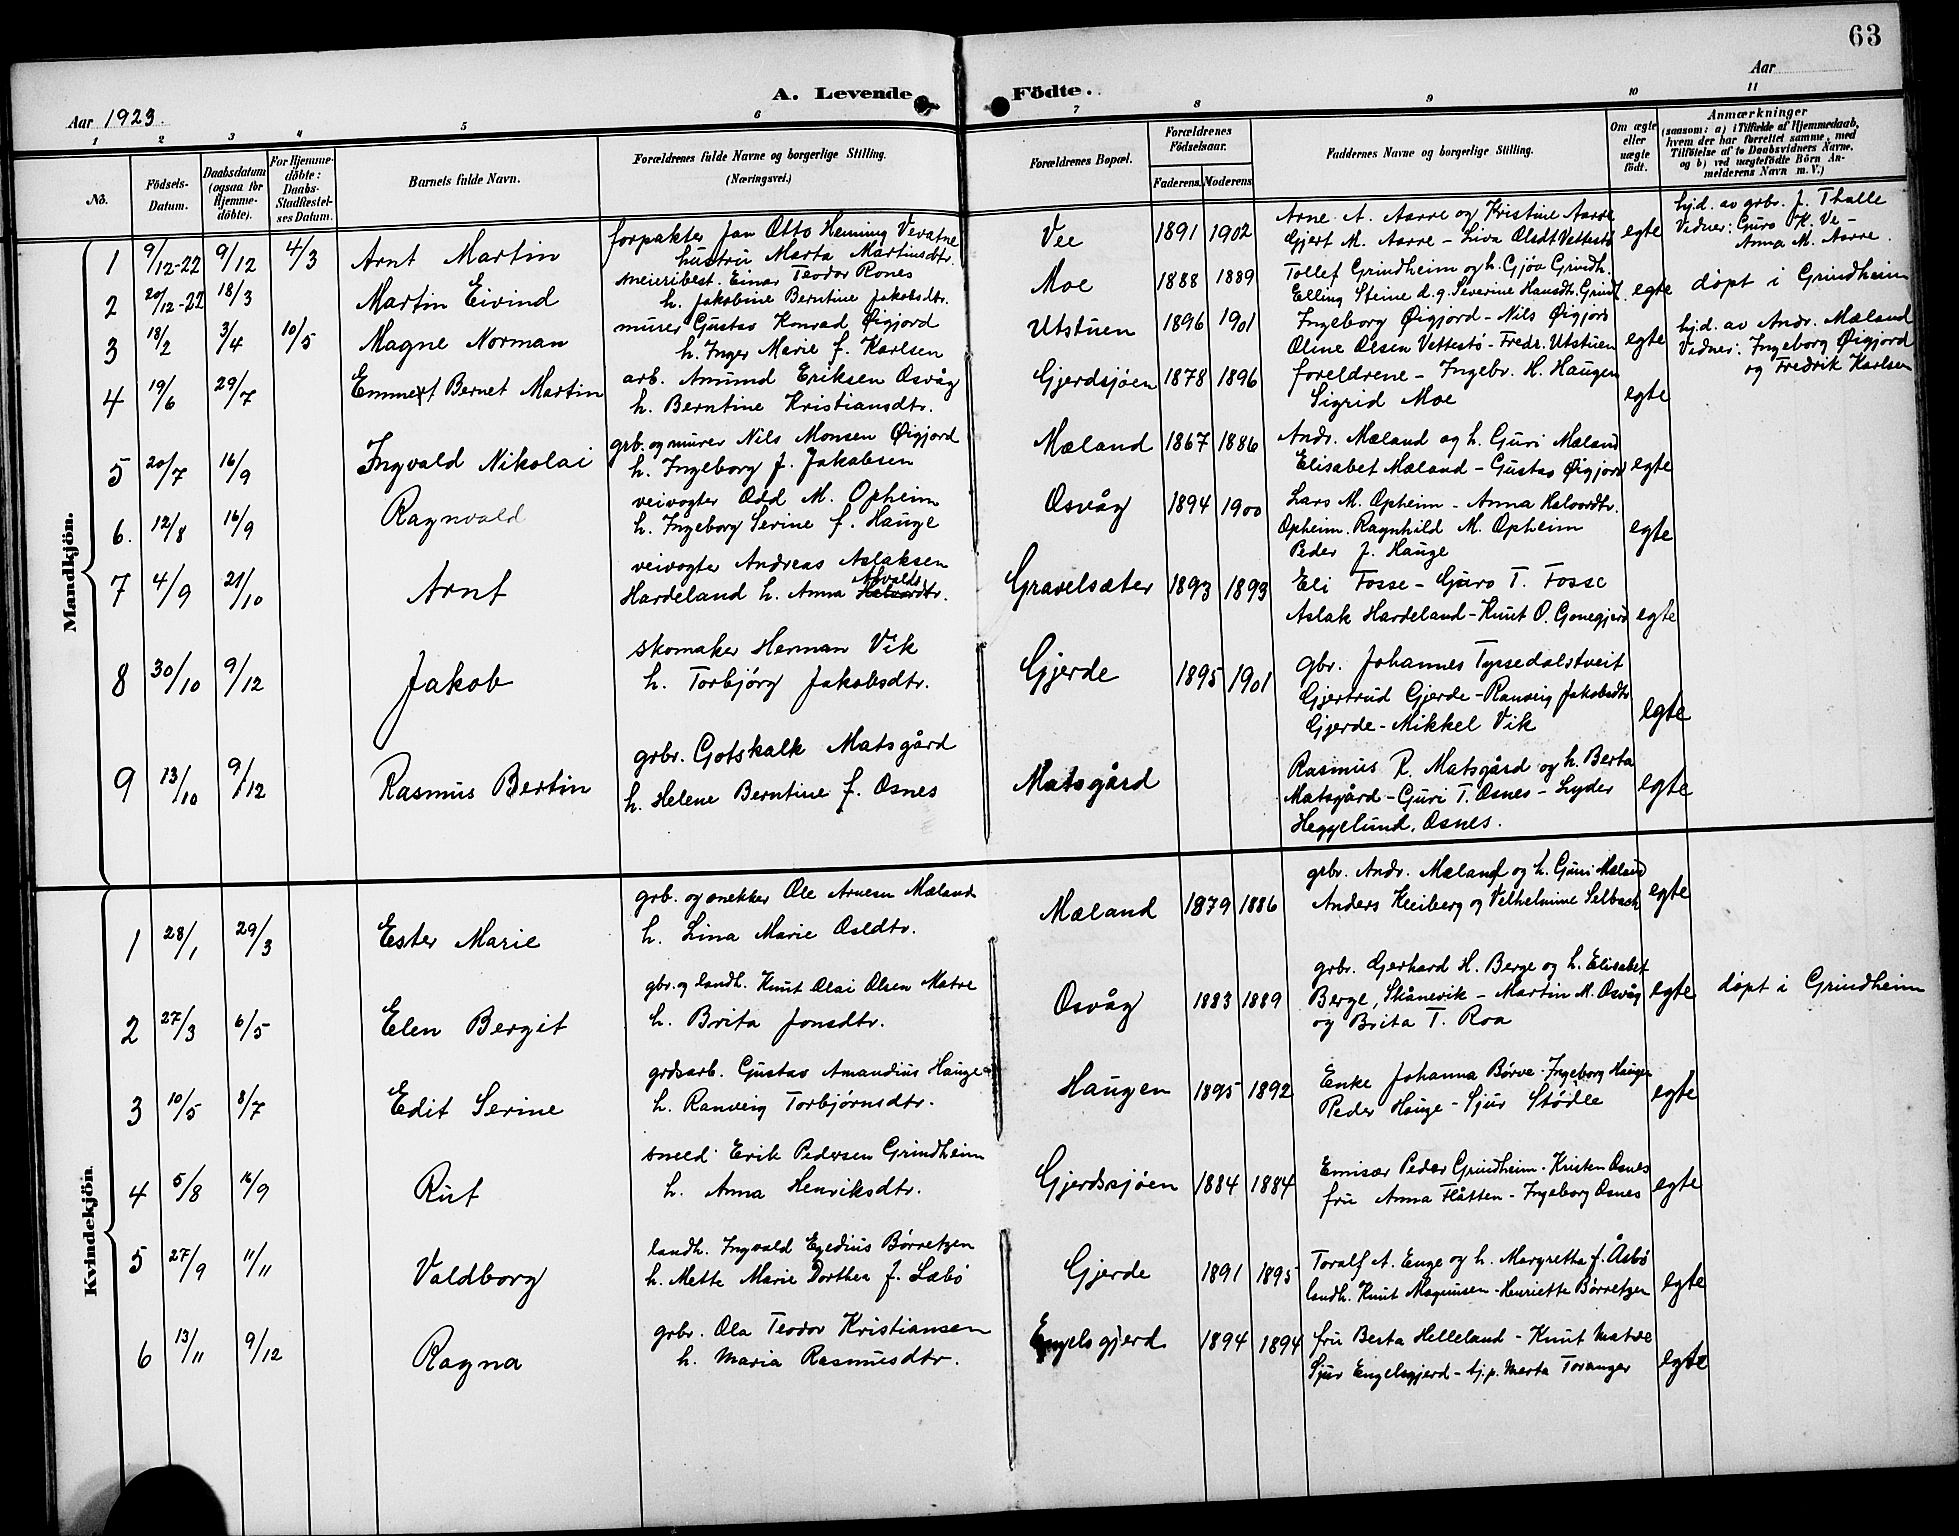 63
Aar 1923.
A. Levende Födte.
Aar
1 2 3 4 5 6 7 8 9 10 11
No.
Födsels-Datum.
Daabsdatum (ogsaa for Hjemme-döbte).
For Hjemme-döbte: Daabs-Stadfæstel-ses Datum.
Barnets fulde Navn.
Forældrenes fulde Navne og borgerlige Stilling.
(Næringsvei.)
Forældrenes Bopæl.
Forældrenes Födselsaar.
Faderens. Moderens.
Faddernes Navne og borgerlige Stilling.
Om ægte eller uægte födt.
Anmærkninger
(saasom: a) i Tilfælde af Hjemmedaab, hvem der har forrettet samme, med Tilföielse af to Daabsvidners Navne, og b) ved uægtefödte Börn An-melderens Navn m. V.)
Mandkjön.
1 9/12-22 9/12 4/3 Arnt Martin
forpakter Jan Otto Henning Vevatne
hustru Marta Martinsdtr.
Vee 1891 1902
Arne A. Aarre og Kristine Aarre
Gjert M. Aarre - Liva Olsdt Vettestø
egte
hjd. av grbr. J. Thalle
Vidner: Guro K. Ve -
Anna M. Aarre.
2 20/12-22 18/3 Martin Eivind
meieribest. Einar Teodor Rones
h. Jakobine Berntine Jakobsdtr.
Moe 1888 1889
Tollef Grindheim og h. Gjøa Grindh.
Elling Steine d.g. Severine Hansdtr. Grindh.
egte døpt i Grindheim
3 18/2 3/4 10/5 Magne Norman
murer Gustav Konrad Øigjord
h. Inger Marie f. Karlsen
Utstuen 1896 1901
Ingeborg Øigjord - Nils Øigjord
Oline Olsen Vettestø - Fredr. Utstuen
egte
hjd. av Andr. Mæland
Vidner: Ingeborg Øigjord
og Fredrik Karlsen
4 19/6 29/7 Emmert Bernet Martin
arb. Amund Eriksen Osvåg
h. Berntine Kristiansdtr.
Gjerdsjøen 1878 1896
foreldrene - Ingebr. H. Haugen
Sigrid Moe
egte
5 20/7 16/9 Ingvald Nikolai
grb. og murer Nils Monsen Øigjord
h. Ingeborg J. Jakobsen
Mæland 1867 1886
Andr. Mæland og h. Guri Mæland
Elisabet Mæland - Gustav Øigjord
egte
6. 12/8 16/9 Ragnvald
veivogter Odd M. Opheim
h. Ingeborg Serine f. Hauge
Osvåg 1894 1900
Lars M. Opheim - Anna Halvordtr.
Opheim. Ragnhild M. Opheim
Peder J. Hauge
egte
7 4/9 21/10 Arnt
veivogter Andreas Aslaksen
Hardeland h. Anna Halvordtr.
Gravelsæter 1893 1893
Eli Fosse - Guro T. Fosse
Aslak Hardeland - Knut O. Gonegjerd
egte
8 30/10 9/12 Jakob
skomaker Herman Vik
h. Torbjørg Jakobsdtr.
Gjerde 1895 1901
gbr. Johannes Tyssedalstveit
Gjertrud Gjerde - Ranveig Jakobsdtr
Gjerde - Mikkel Vik
egte
9 13/10 9/12 Rasmus Bertin
grbr. Gotskalk Matsgård
h. Helene Berntine f. Osnes
Matsgård
Rasmus R. Matsgård og h. Berta
Matsgård - Guri T. Osnes - Lyder
Heggelund, Osnes.
egte
Kvindekjön.
1 28/1 29/3 Ester Marie
grb. og snekker Ole Arnesen Mæland
h. Lina Marie Osldtr.
Mæland 1879 1886
grbr. Andr. Mæland og h. Guri Mæland
Anders Heiberg og Velhelmine Selbach
egte
2 27/3 6/5 Elen Bergit
gbr. og landh. Knut Olai Olsen Matre
h. Brita Jonsdtr.
Osvåg 1883 1889
grbr. Gerhard H. Berge og h. Elisabet
Berge, Skånevik - Martin M. Osvåg
og Brita T. Roa
egte døpt i Grindheim
3 10/5 8/7 Edit Serine
grdsarb. Gustav Amandius Haugen
h. Ranveig Torbjørnsdtr.
Haugen 1895 1892
Enke Johanna Børve - Ingeborg Haugen
Peder Hauge - Sjur Stødle
egte
4 5/8 16/9 Rut
smed Erik Pedersen Grindheim
h. Anna Henriksdtr.
Gjerdsjøen 1884 1884
Emisær Peder Grindheim - Kristen Osnes
fru Anna Flåtten - Ingeborg Osnes
egte
5 27/9 11/11 Valdborg
landh. Ingvald Egedius Børretzen
h. Mette Marie Dorthea f. Læbø
Gjerde 1891 1895
Toralf A. Enge og h. Margretha f. Åsbø
landh. Knut Magnusen - Henriette Børretzen
egte
6 13/11 9/12 Ragna
grbr. Ola Teodor Kristiansen
h. Maria Rasmusdtr.
Engelsgjerd 1894 1894
fru Berta Helleland - Knut Matre
Sjur Engelsgjerd - tj.p. Merta Toranger
egte